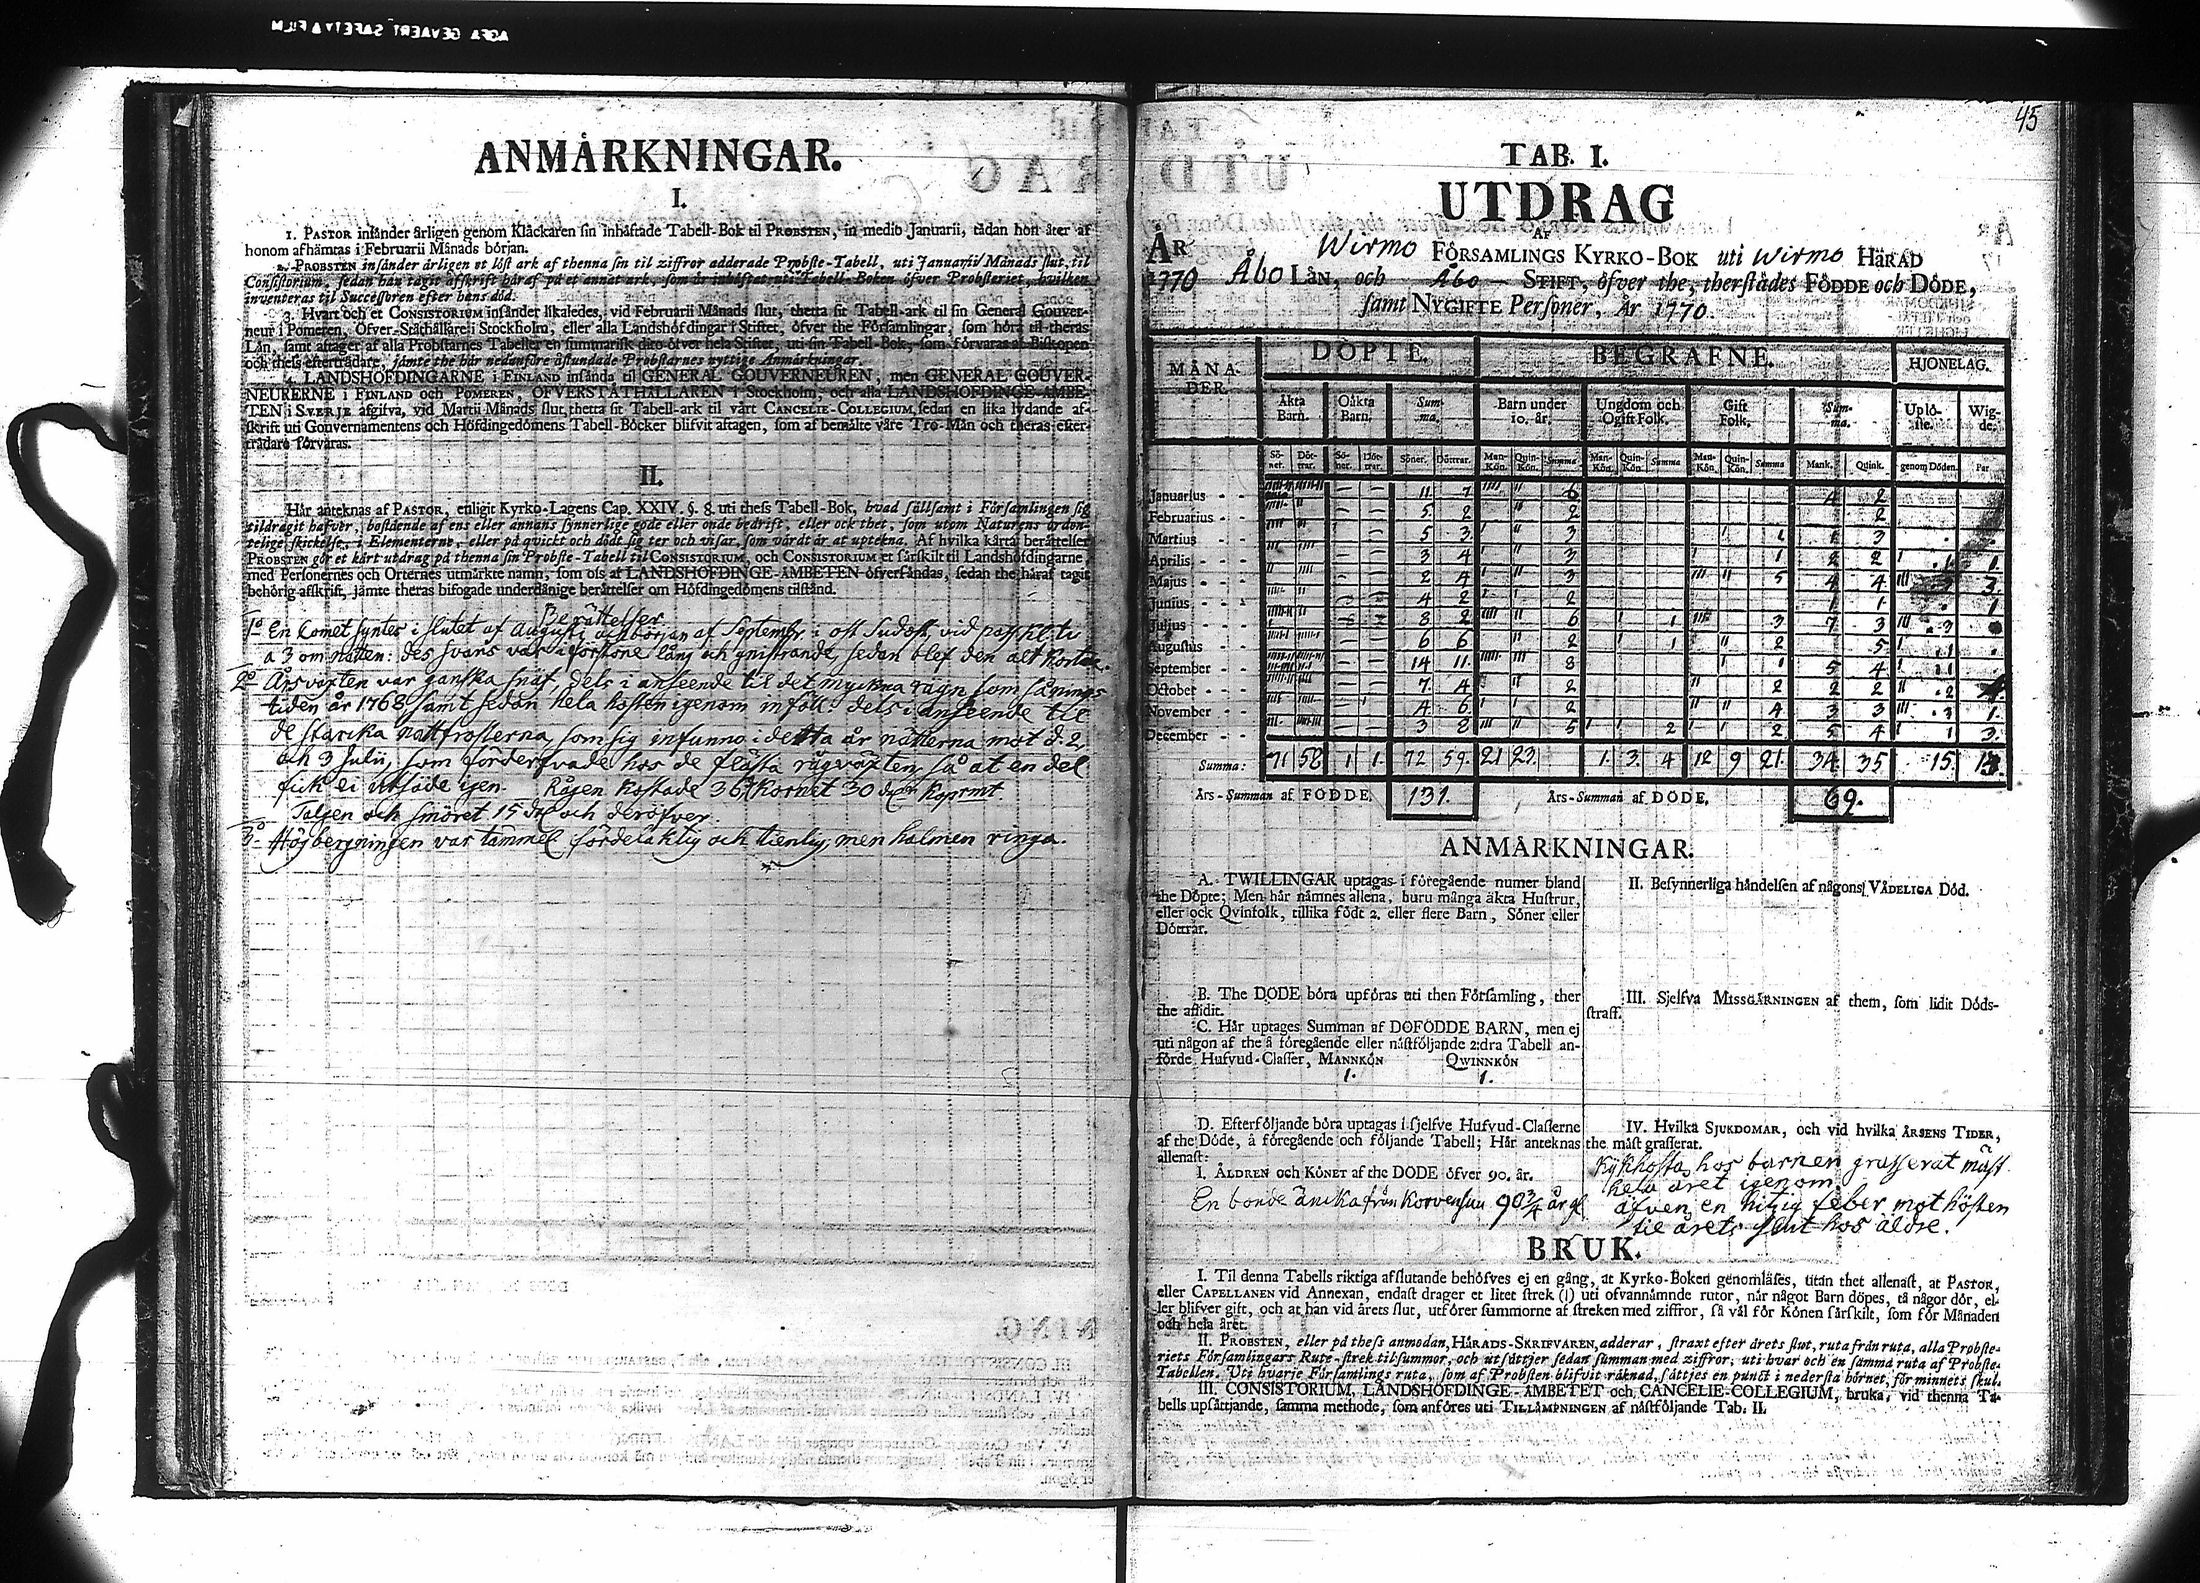 ANMÄRKNINGAR.
I.
1. PASTOR insänder årligen genom Klåckaren sin inhäftade Tabell-Bok til PROBSTEN, in medio Januarii, tådan hon åter af
honom afhämtas i Februarii Månads början.
2. PROBSTEN insänder årligen et löst ark af thenna sin til ziffror adderade Probste-Tabell, uti Januarii Månads slut, til
Consistorium, sedan han tagit afskrift häraf på et annat ark, som är inhäftat uti Tabell-Boken öfver Probsteriet, hvilken
inventeras til Successoren efter hans död.
3. Hvart och et CONSISTORIUM insänder likaledes, vid Februarii Månads slut, thetta sit Tabell-ark til sin General Gouver-
neur i Pomeren, Öfver-Ståthållare i Stockholm, eller alla Landshöfdingar i Stiftet, öfver the Församlingar, som höra til theras
Län, samt aftager af alla Probstarnes Tabeller en summarisk dito öfver hela Stiftet, uti sin Tabell-Bok, som förvaras at Biskopen
och thess efterträdare, jämte the här nedanföre åstundade Probstarnes nyttige Anmärkningar.
4. LANDSHÖFDINGARNE i FINLAND insända til GENERAL GOUVERNEUREN, men GENERAL GOUVER-
NEURERNE i FINLAND och POMEREN, ÖFVERSTÅTHÅLLAREN i Stockholm, och alla LANDSHÖFDINGE-ÄMBE-
TEN i SVERJE afgifva, vid Martii Månads slut, thetta sit Tabell-ark til vårt CANCELIE-COLLEGIUM, sedan en lika lydande af-
skrift uti Gouvernamentens och Höfdingedömens Tabell-Böcker blifvit aftagen, som af bemälte våre Tro-Män och theras efter-
trädare förvaras.
II.
Här anteknas af PASTOR, enligit Kyrko-Lagens Cap. XXIV. §. 8. uti thess Tabell-Bok, hvad sällsamt i Församlingen sig
tildragit hafver, bestående af ens eller annans synnerlige gode eller onde bedrift, eller ock thet, som utom Naturens orden-
telige skickelse, i Elementerne, eller på qvickt och dödt sig ter och visar, som värdt är at uptekna. Af hvilka kårta berättelser
PROBSTEN gör et kårt utdrag på thenna sin Probste-Tabell til CONSISTORIUM, och CONSISTORIUM et särskilt til Landshöfdingarne,
med Personernes och Orternes utmärkte namn, som oss af LANDSHÖFDINGE-ÄMBETEN öfversändas, sedan the häraf tagit
behörig afskrift, jämte theras bifogade underdånige berättelser om Höfdingedömens tilstånd.
Berättelser
1o En Comet syntes i slutet af Augusti och början af Septembr. i ost Sudost, vid pass kl. 12
a 3 om natten: des svans var i förstone lång och gnistrande, sedan blef den alt kortare.
2o Årsväxten var ganska snäf, dels i anseende til det myckna rägn som sånings
tiden år 1768 samt sedan hela hösten igenom inföll dels i anseende til
de starcka nattfrosterna, som sig infunno i detta år nätterna mot d. 2
och 3 Julii, som förderfvade hos de flästa rågväxten så at en del
fick ei utsäde igen. Rågen kostade 36 Kornet 30 Koprmt.
Talgen och smöret 15 och deröfver.
3o Höjbergningen var tämmel. fördelaktig och tienlig, men halmen ringa.
45
TAB. I.
UTDRAG
AF
ÅR Wirmo FÖRSAMLINGS KYRKO-BOK uti Wirmo HÄRAD
1770 Åbo LÄN, och Åbo STIFT, öfver the, therstädes FÖDDE och DÖDE,
samt NYGIFTE Personer, År 1770.
MÅNA-DER. DÖPTE. BEGRAFNE. HJONELAG.
Äkta Barn. Oäkta Barn. Summa. Barn under 10. år. Ungdom och Ogift Folk. Gift Folk. Summa. Uplöste. Wigde.
Söner. Döttrar. Söner. Döttrar. Söner. Döttrar. Man-Kön. Quin-Kön. Summa Man-Kön. Quin-Kön. Summa Man-Kön. Quin-Kön. Summa Mank. Quink. genom Döden. Par
Januarius 11 7 6 4 2
Februarius 5 2 2 2
Martius 5 3 3 1 1 3
Aprilis 3 4 3 1 2 2 1 1
Majus 2 4 3 5 4 4 3
Junius 4 2 2 1 1 1
Julius 8 2 6 1 3 7 3 3
Augustus 6 6 2 1 2 5 1
September 14 11 8 1 5 4 1
October 7 4 2 2 2 2 2
November 4 6 2 4 3 3 3 1
December 3 8 5 2 2 5 4 1 3
Summa: 71 58 1 1 72 59 21 23 1 3 4 12 9 21 34 35 15
Års-Summan af FÖDDE. 131. Års-Summan af DÖDE. 69.
ANMÄRKNINGAR.
A. TWILLINGAR uptagas i föregående numer bland
the Döpte; Men här nämnes allena, huru många äkta Hustrur,
eller ock Qvinfolk, tillika födt 2. eller flere Barn, Söner eller
Döttrar.
B. The DÖDE böra upföras uti then Församling, ther
the aflidit.
C. Här uptages Summan af DÖFÖDDE BARN, men ej
uti någon af the å föregående eller nästföljande 2:dra Tabell an-
förde Hufvud-Classer, MANNKÖN QWINNKÖN
1. 1.
D. Efterföljande böra uptagas i sjelfve Hufvud-Classerne
af the Döde, å föregående och följande Tabell; Här anteknas
allenast:
I. ÅLDREN och KÖNET af the DÖDE öfver 90. år.
En bonde änka från Korvensuu 90 3/4 år gl
II. Besynnerliga händelsen af någons VÅDELIGA Död.
III. Sjelfva MISSGÄRNINGEN af them, som lidit Döds-
straff.
IV. Hvilka SJUKDOMAR, och vid hvilka ÅRSENS TIDER,
the mäst grasserat.
Kikhosta hos barnen grasserat mäst
hela året igenom.
äfven en hitzig feber mot hösten
til årets slut hos äldre.
BRUK.
I. Til denna Tabells riktiga afslutande behöfves ej en gång, at Kyrko-Boken genomläses, utan thet allenast, at PASTOR,
eller CAPELLANEN vid Annexan, endast drager et litet strek (|) uti ofvannämnde rutor, när något Barn döpes, tå någor dör, el-
ler blifver gift, och at han vid årets slut, utförer summorne af streken med ziffror, så väl för Könen särskilt, som för Månaden
och hela året.
II. PROBSTEN, eller på thess anmodan, HÄRADS-SKRIFVAREN, adderar, straxt efter årets slut, ruta från ruta, alla Probste-
riets Församlingars Rute-strek til summor, och utsättjer sedan summan med ziffror, uti hvar och en samma ruta af Probste-
Tabellen. Uti hvarje Församlings ruta, som af Probsten blifvit räknad, sättjes en punct i nedersta hörnet, för minnets skul.
III. CONSISTORIUM, LANDSHÖFDINGE-ÄMBETET och CANCELIE-COLLEGIUM, bruka, vid thenna Ta-
bells upsättjande, samma methode, som anföres uti TILLÄMPNINGEN af nästföljande Tab. II.